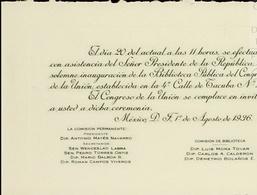 El día 20 del actual a las 11 horas, se efectua
con asistencia del Señor Presidente de la República,
solemne inauguración de la Biblioteca Pública del Congr
de la Unión, establecida en la 4ª Calle de Tacuba Nº
El Congreso de la Unión se complace en invit
a usted a dicha ceremonia.
México, D. F. 1º de Agosto de 1936.
LA COMISION PERMANENTE:
PRESIDENTE
DIP. ANTONIO MAYES NAVARRO
SECRETARIOS
SEN. WENCESLAO LABRA
SEN. PEDRO TORRES ORTIZ
DIP. MARIO BALBOA R.
DIP. ROMAN CAMPOS VIVEROS
COMISION DE BIBLIOTECA
DIP. LUIS MORA TOVAR
DIP. CARLOS A. CALDERON
DIP. DEMETRIO BOLAÑOS E.